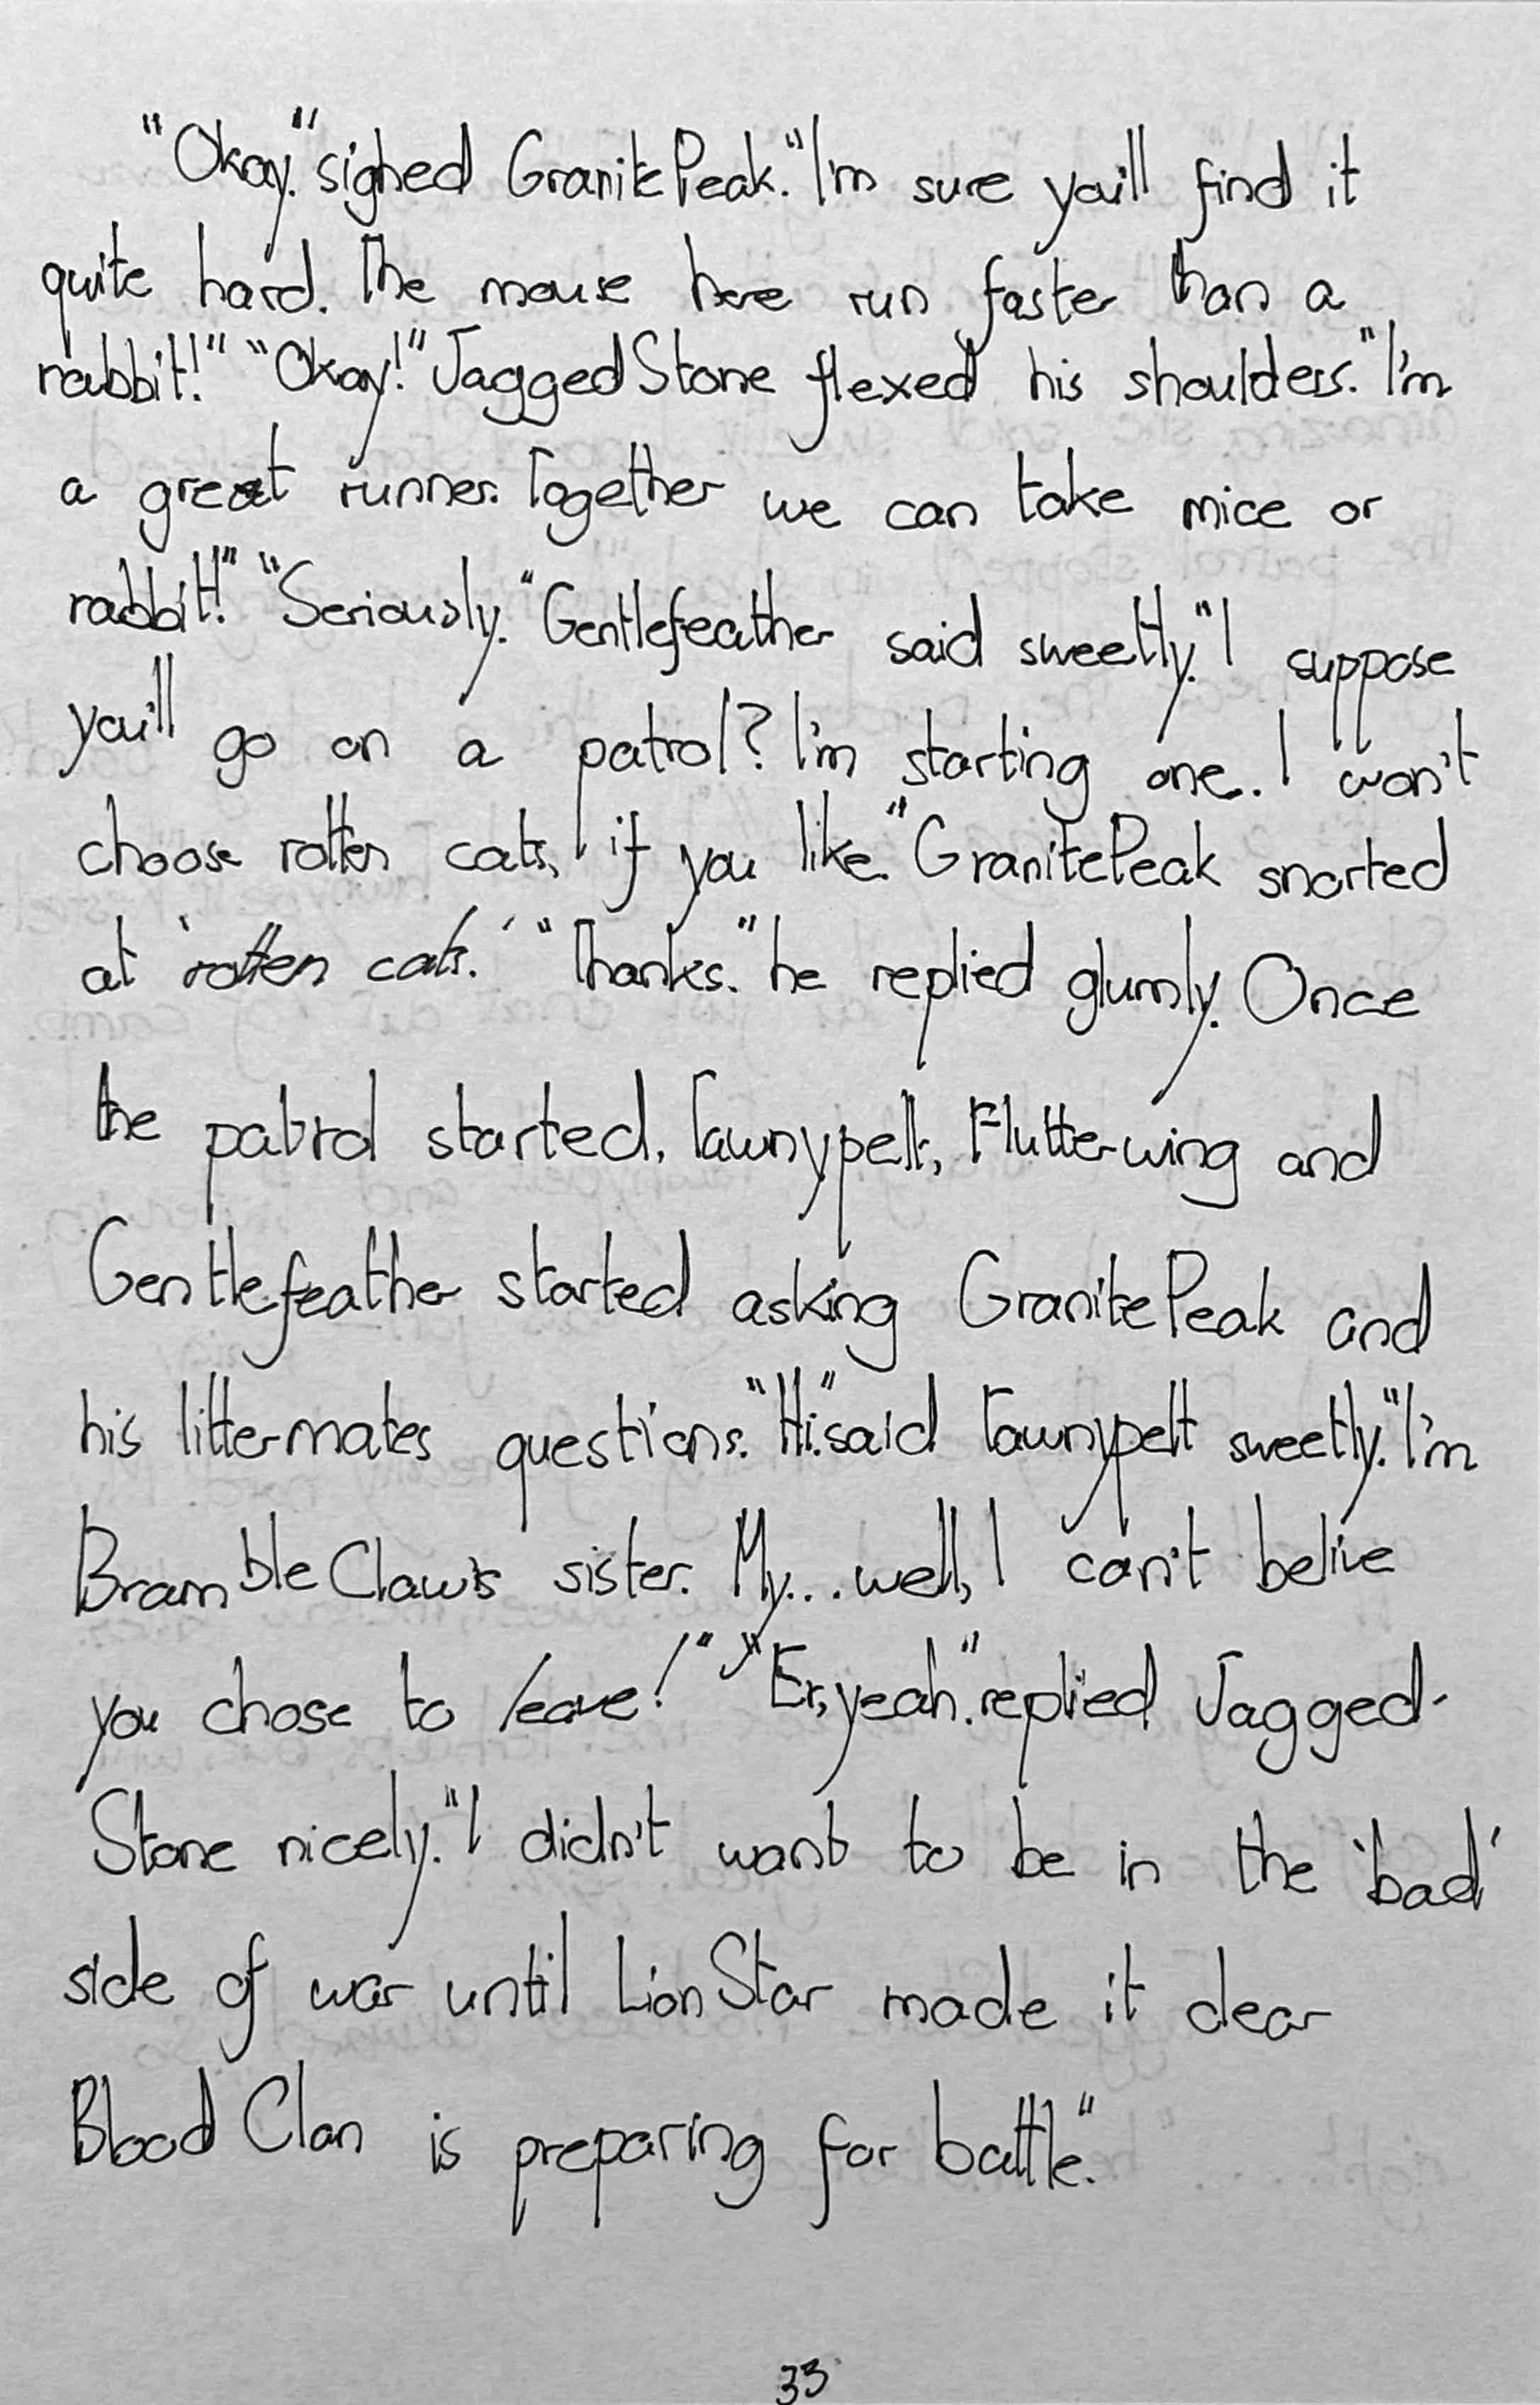 "Okay." sighed GranitePeak. "I'm sure you'll find it
quite hard. The mouse here run faster than a
rabbit!" "Okay!" JaggedStone flexed his shoulders. "I'm
a great runner. Together we can take mice or
rabbit!" "Seriously." Gentlefeather said sweetly. "I suppose
you'll go on a patrol? I'm starting one. I won't
choose rotten cats, if you like." GranitePeak snorted
at 'rotten cats.' "Thanks." he replied glumly. Once
the patrol started, Tawnypelt, Flutterwing and
Gentlefeather started asking GranitePeak and
his littermates questions. "Hi." said Tawnypelt sweetly. "I'm
BrambleClaw's sister. My... well, I can't belive
you chose to leave!" "Er, yeah." replied Jagged-
Stone nicely. "I didn't want to be in the 'bad'
side of war until LionStar made it clear
BloodClan is preparing for battle."
33